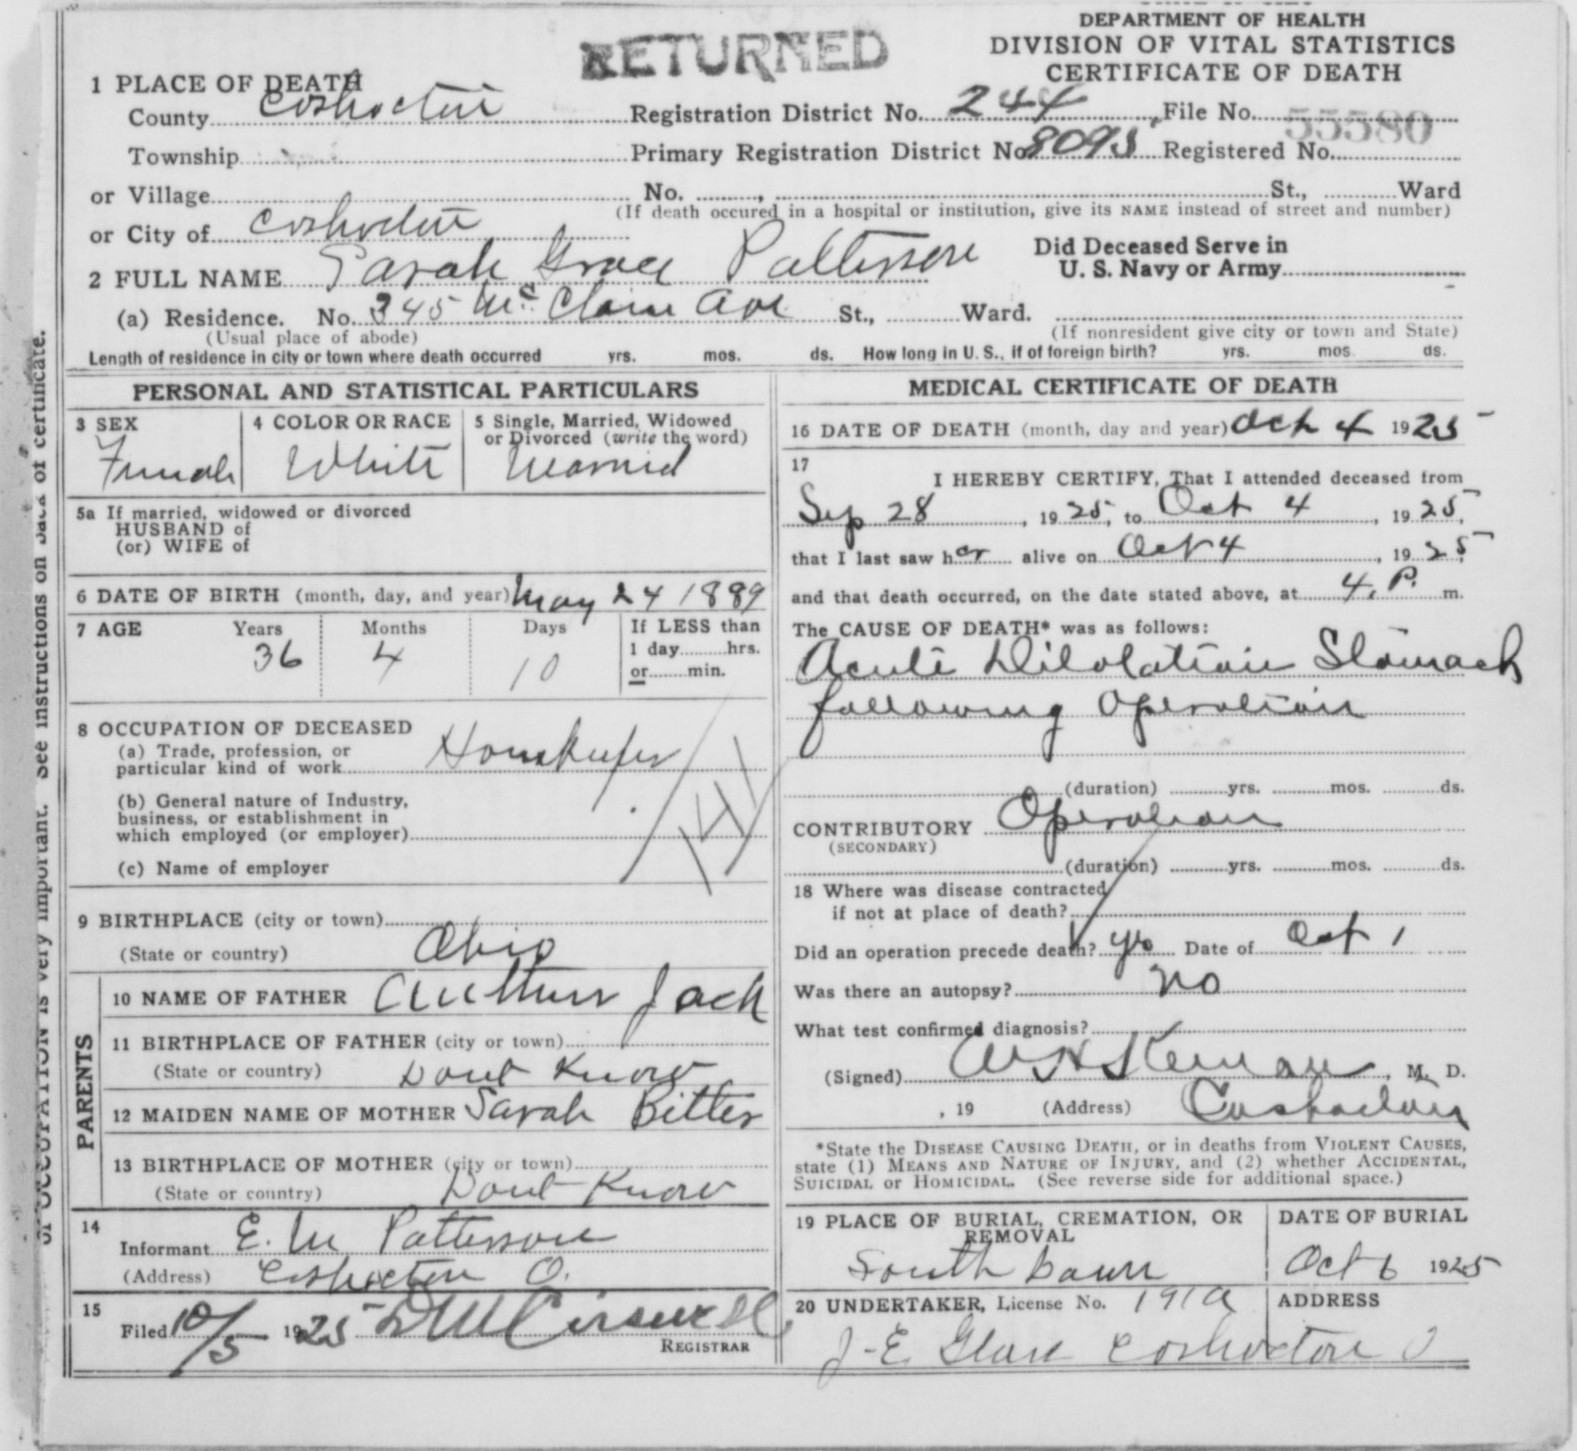 DEPARTMENT OF HEALTH
DIVISION OF VITAL STATISTICS
CERTIFICATE OF DEATH
RETURNED
1 PLACE OF DEATH
County Coshocton Registration District No. 244 File No. 55580
Township Primary Registration District No 8095 Registered No.
or Village No. , St., Ward
(If death occured in a hospital or institution, give its NAME instead of street and number)
or City of Coshocton
2 FULL NAME Sarah Grace Patterson Did Deceased Serve in
U. S. Navy or Army
(a) Residence. No. 345 Mc Claine Ave St., Ward.
(Usual place of abode) (If nonresident give city or town and State)
Length of residence in city or town where death occurred yrs. mos. ds. How long in U. S., if of foreign birth? yrs. mos. ds.
PERSONAL AND STATISTICAL PARTICULARS
3 SEX 4 COLOR OR RACE 5 Single, Married, Widowed
or Divorced (write the word)
Female White Married
5a If married, widowed or divorced
HUSBAND of
(or) WIFE of
6 DATE OF BIRTH (month, day, and year) May 24 1889
7 AGE Years Months Days If LESS than
36 4 10 1 day hrs.
or min.
8 OCCUPATION OF DECEASED
(a) Trade, profession, or
particular kind of work Housekeeper
(b) General nature of Industry,
business, or establishment in
which employed (or employer)
(c) Name of employer
9 BIRTHPLACE (city or town)
(State or country) Ohio
PARENTS
10 NAME OF FATHER Arthur Jack
11 BIRTHPLACE OF FATHER (city or town)
(State or country) Dont Know
12 MAIDEN NAME OF MOTHER Sarah Bitter
13 BIRTHPLACE OF MOTHER (city or town)
(State or country) Dont Know
14
Informant E. M Patterson
(Address) Coshocton O.
15
Filed 10/5 1925
REGISTRAR
MEDICAL CERTIFICATE OF DEATH
16 DATE OF DEATH (month, day and year) Oct 4 1925
17
I HEREBY CERTIFY, That I attended deceased from
Sep 28, 1925, to Oct 4, 1925,
that I last saw her alive on Oct 4, 1925
and that death occurred, on the date stated above, at 4. P. m.
The CAUSE OF DEATH* was as follows:
Acute Dilolation Stomach
following Operation
(duration) yrs. mos. ds.
CONTRIBUTORY Operation
(SECONDARY)
(duration) yrs. mos. ds.
18 Where was disease contracted
if not at place of death?
Did an operation precede death? yes Date of Oct 1
Was there an autopsy? no
What test confirmed diagnosis?
(Signed) M. D.
, 19 (Address) Coshocton
*State the DISEASE CAUSING DEATH, or in deaths from VIOLENT CAUSES,
state (1) MEANS AND NATURE OF INJURY, and (2) whether ACCIDENTAL,
SUICIDAL or HOMICIDAL. (See reverse side for additional space.)
19 PLACE OF BURIAL, CREMATION, OR
REMOVAL
South Lawn
DATE OF BURIAL
Oct 6 1925
20 UNDERTAKER, License No. 191a ADDRESS
J-E Coshocton O
See instructions on back of certificate.
of OCCUPATION is very important.